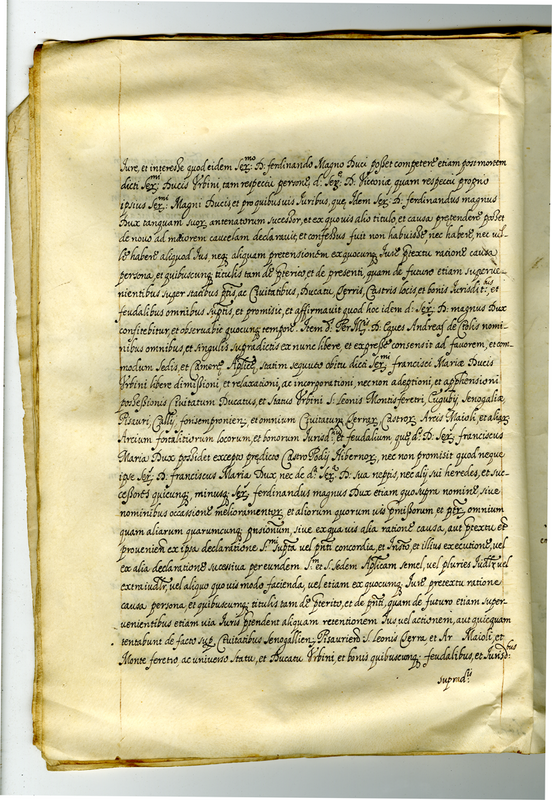 Iure, et interesse quod eidem Ser.mo D. ferdinando Magno Duci posset competere etiam post mortem
dicti Ser.mi Ducis Urbini, tam respectu persone d. Ser.e D. Victoriæ quam respectu
ipsius Ser.mi Magni Ducis, et pro quibusuis Iuribus, que Idem Ser. D. ferdinandus magnus
Dux tanquam suor. antenatorum sucessor, et ex quouis alio titulo, et causa pretendere posset
de nouo ad maiorem cautelam declarauit, et confessus fuit non habuisse nec habere, nec uel-
le habere aliquod Ius, neq. aliquam pretensionem ex quocunq. Iure ptextu ratione causa
persona, et quibuscunq. titulis tam de pterito, et de presenti, quam de futuro etiam superue-
nientibus super statibus ptis, ac Ciuitatibus, Ducatu, Terris, Castris locis, et bonis Iurisd.bus, et
feudalibus omnibus suptis, et promisit, et affirmauit quod hoc idem d. Ser. D. magnus Dux
confitebitur, et obseruabit quocunq. tempore. Item d. Per Ill. D. Eques Andreas de Ciolis nomi-
nibus omnibus, et singulis supradictis ex nunc libere, et expresse consensit ad fauorem, et com-
modum Sedis, et Cameræ Aplicæ, statim sequuto obitu dicti Ser.mi francisci Mariæ Ducis
Urbini libere dimissioni, et relaxationi, ac incorporationi, nec non adeptioni, et apphensioni
possessionis Ciuitatum Ducatus, et Status Urbini S. Leonis Montisferetri, Eugubij, Senogaliæ,
Pisauri, Callij, forisempronien, et omnium Ciuitatum, Terrar., Castror. Arcis Maioli, et aliar.
Arcium fortalitiorum locorum, et bonorum Iurisd. et feudalium que d. D. Ser. franciscus
Maria Dux possidet excepto predicto Castro Podij Hibernor., nec non promisit quod neque
ipse Ser. D. franciscus Maria Dux nec d.a Ser. D. sua neptis, nec alij sui heredes, et suc-
cessores quicunq. minusq. Ser. ferdinandus magnus Dux etiam quo supra nomine, siue
nominibus occasione melioramentor. et aliorum quorum uis pmissorum et ptr. omnium
quam aliarum quarumcunq. pnsionum, siue ex qua uis alia ratione causa, aut ptextu et
prouenien. ex ipsa declaratione S.mi supta uel pnti concordia, et Insto, et illius executione, uel
ex alia declaratione sucessiua per eundem S.m et S. Sedem Aplicam semel, uel pluries Iudlr, uel
extraiudlr, uel aliquo quouis modo facienda, uel etiam ex quocunq. Iure pretextu ratione
causa persona, et quibuscunq. titulis tam de pterito, et de pnti, quam de futuro etiam super-
uenientibus etiam uia Iuris ptendent aliquam retentionem Ius uel actionem, aut quicquam
tentabunt de facto sup. Ciuitatibus Senogallien, Pisaurien S. Leonis Terra, et Ar Maioli, et
Monte feretro, ac uniuerso Statu, et Ducatu Urbini, et bonis quibuscunq. feudalibus, et Iurisd.bus
suprad.is